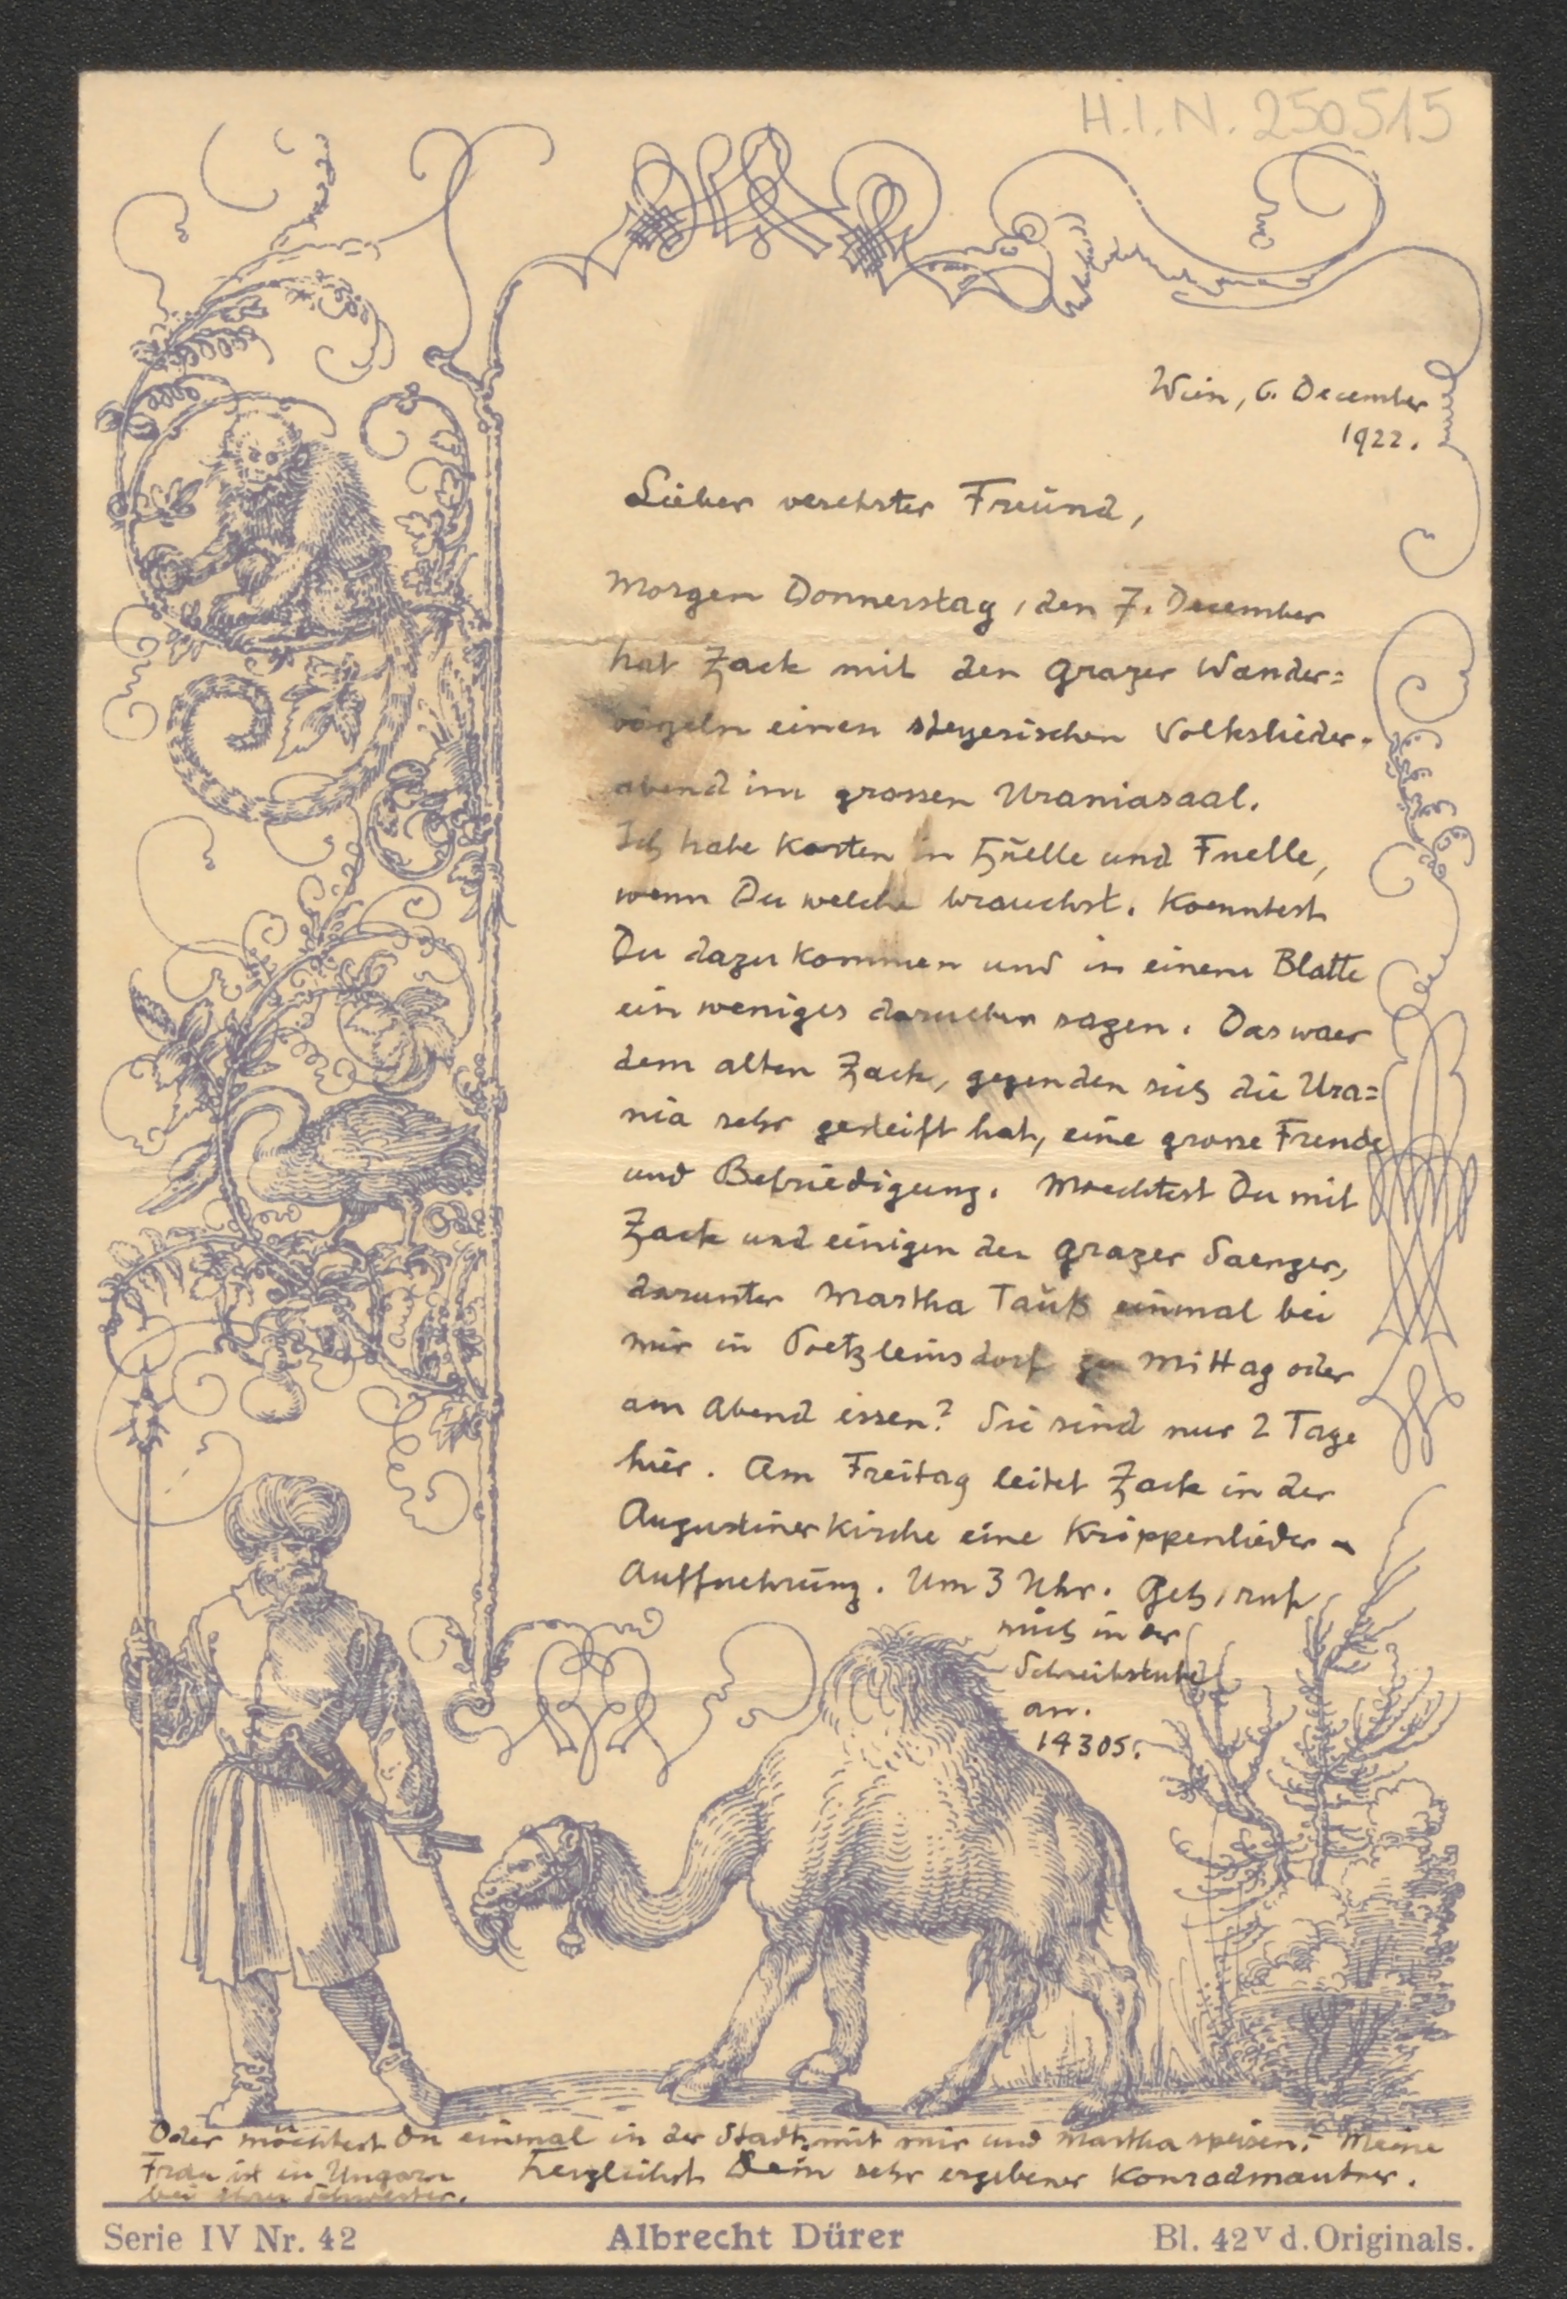 H.I.N. 250515
Wien, 6. December
1922.
Lieber verehrter Freund,
Morgen Donnerstag, den 7. December
hat Zack mit den Grazer Wander=
vögeln einen steyerischen Volkslieder-
abend im grossen Uraniasaal.
Ich habe Karten in Hülle und Fuelle,
wenn Du welche brauchst. Koenntest
Du dazu kommen und in einem Blatte
ein weniges darueber sagen. Das waer
dem alten Zack, gegen den sich die Ura=
nia sehr gesteift hat, eine grosse Freude
und Befriedigung. Moechtest Du mit
Zack und einigen der Grazer Saenger,
darunter Martha Tauß einmal bei
mir in Poetzleinsdorf zu Mittag oder
am Abend essen? Sie sind nur 2 Tage
hier. Am Freitag leitet Zack in der
Augustinerkirche eine Krippenlieder-
Auffuehrung. Um 3 Uhr. Geh, ruf
mich in der
Schreibstube
an.
14305.
Oder möchtest Du einmal in der Stadt mit mir und Martha speisen? Meine
Frau ist in Ungarn
bei ihrer Schwester.
Herzlichst Dein sehr ergebener Konradmautner.
Serie IV Nr. 42
Albrecht Dürer
Bl. 42v d. Originals.